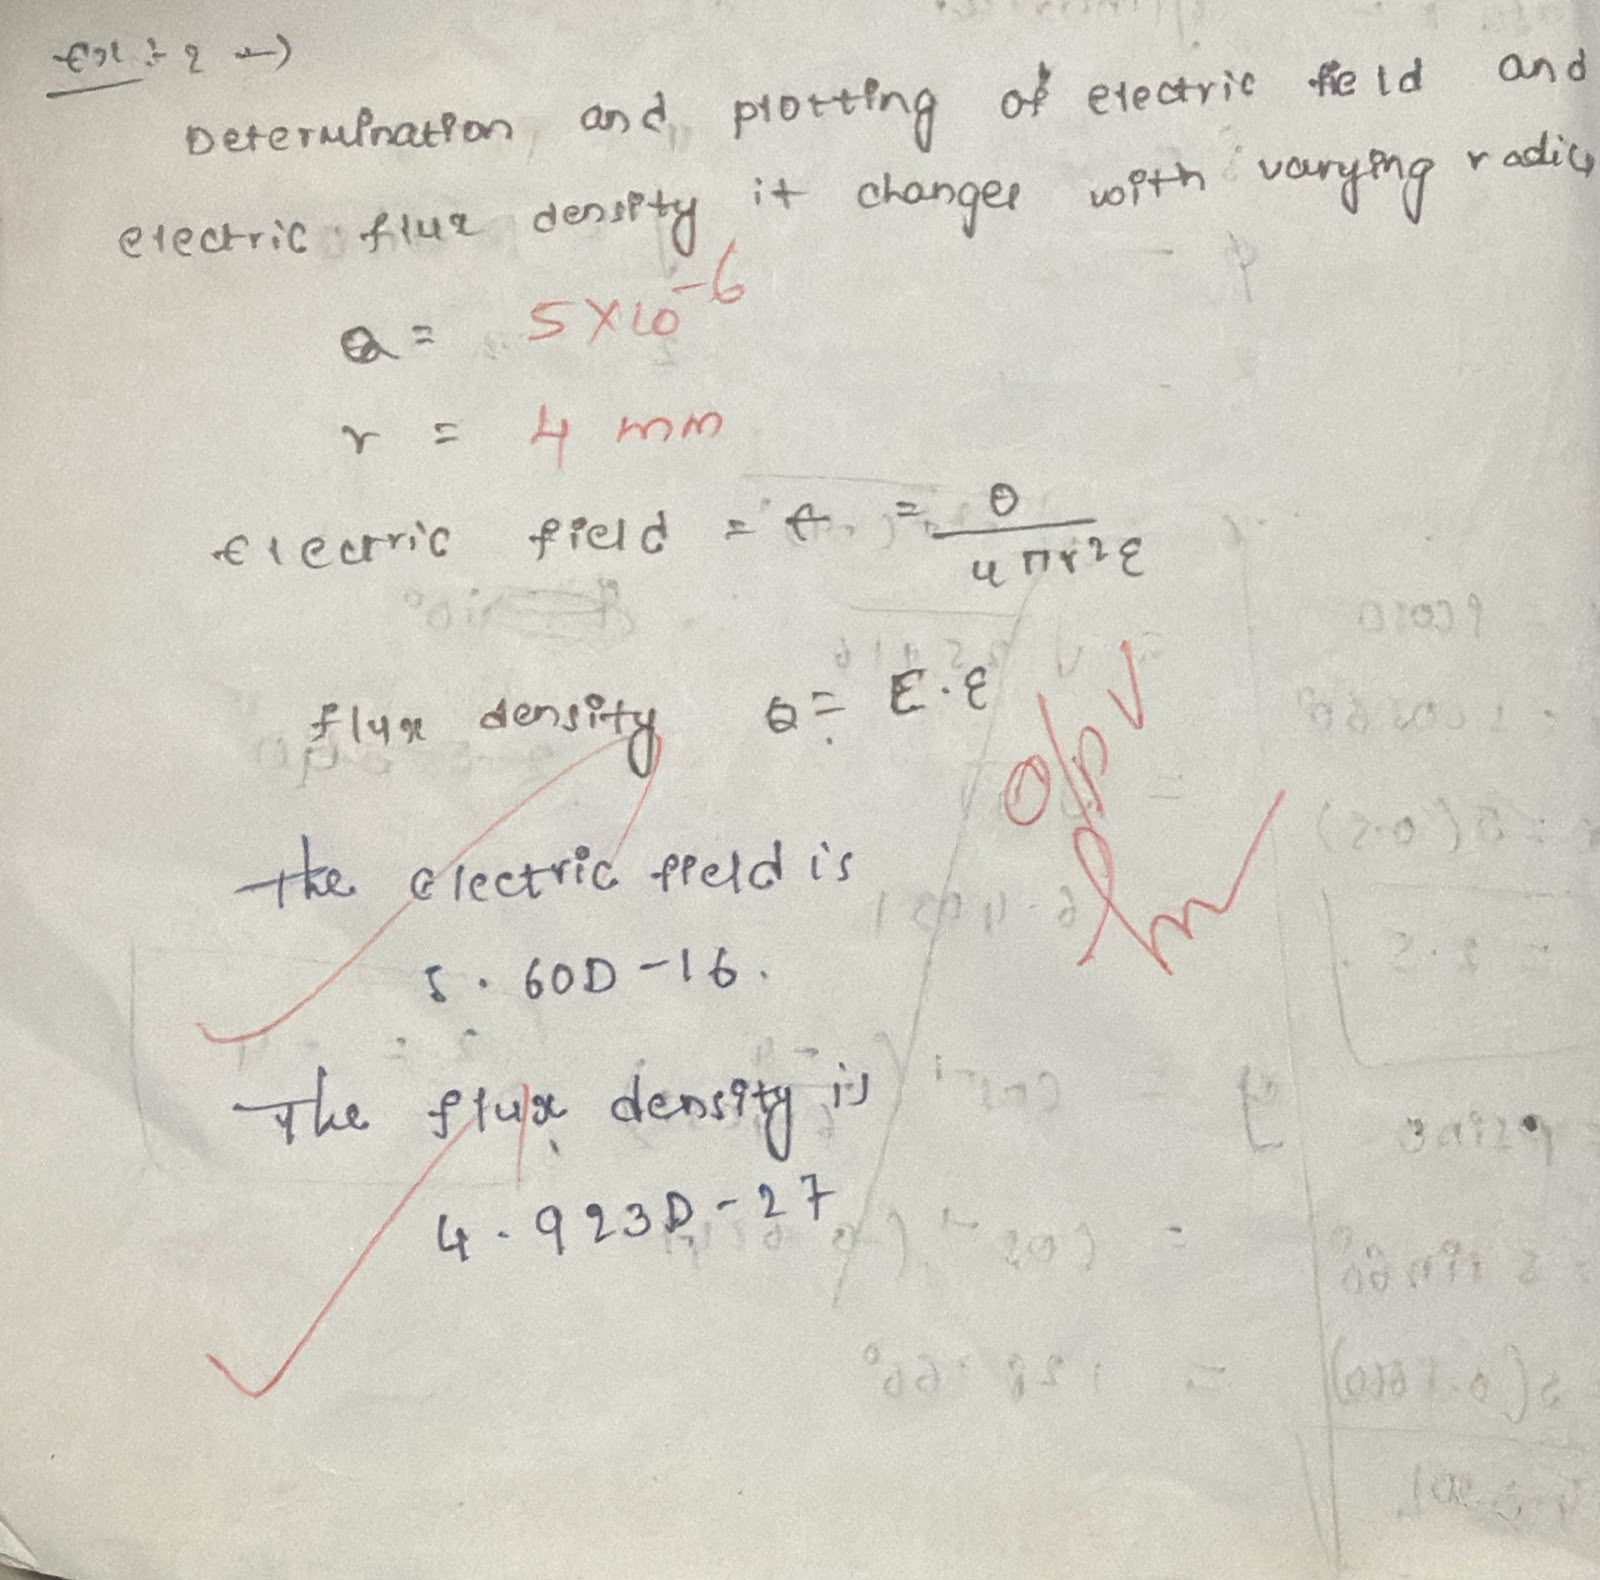 Ex: 2 →
Determination and plotting of electric field and
electric flux density it changes with varying radius
Q = 5×10⁻⁶
r = 4 mm
Electric field = E = Q / 4πr²ε
flux density Q = E.ε
O/P ✓
The electric field is
5.60D-16.
The flux density is
4.923D-27